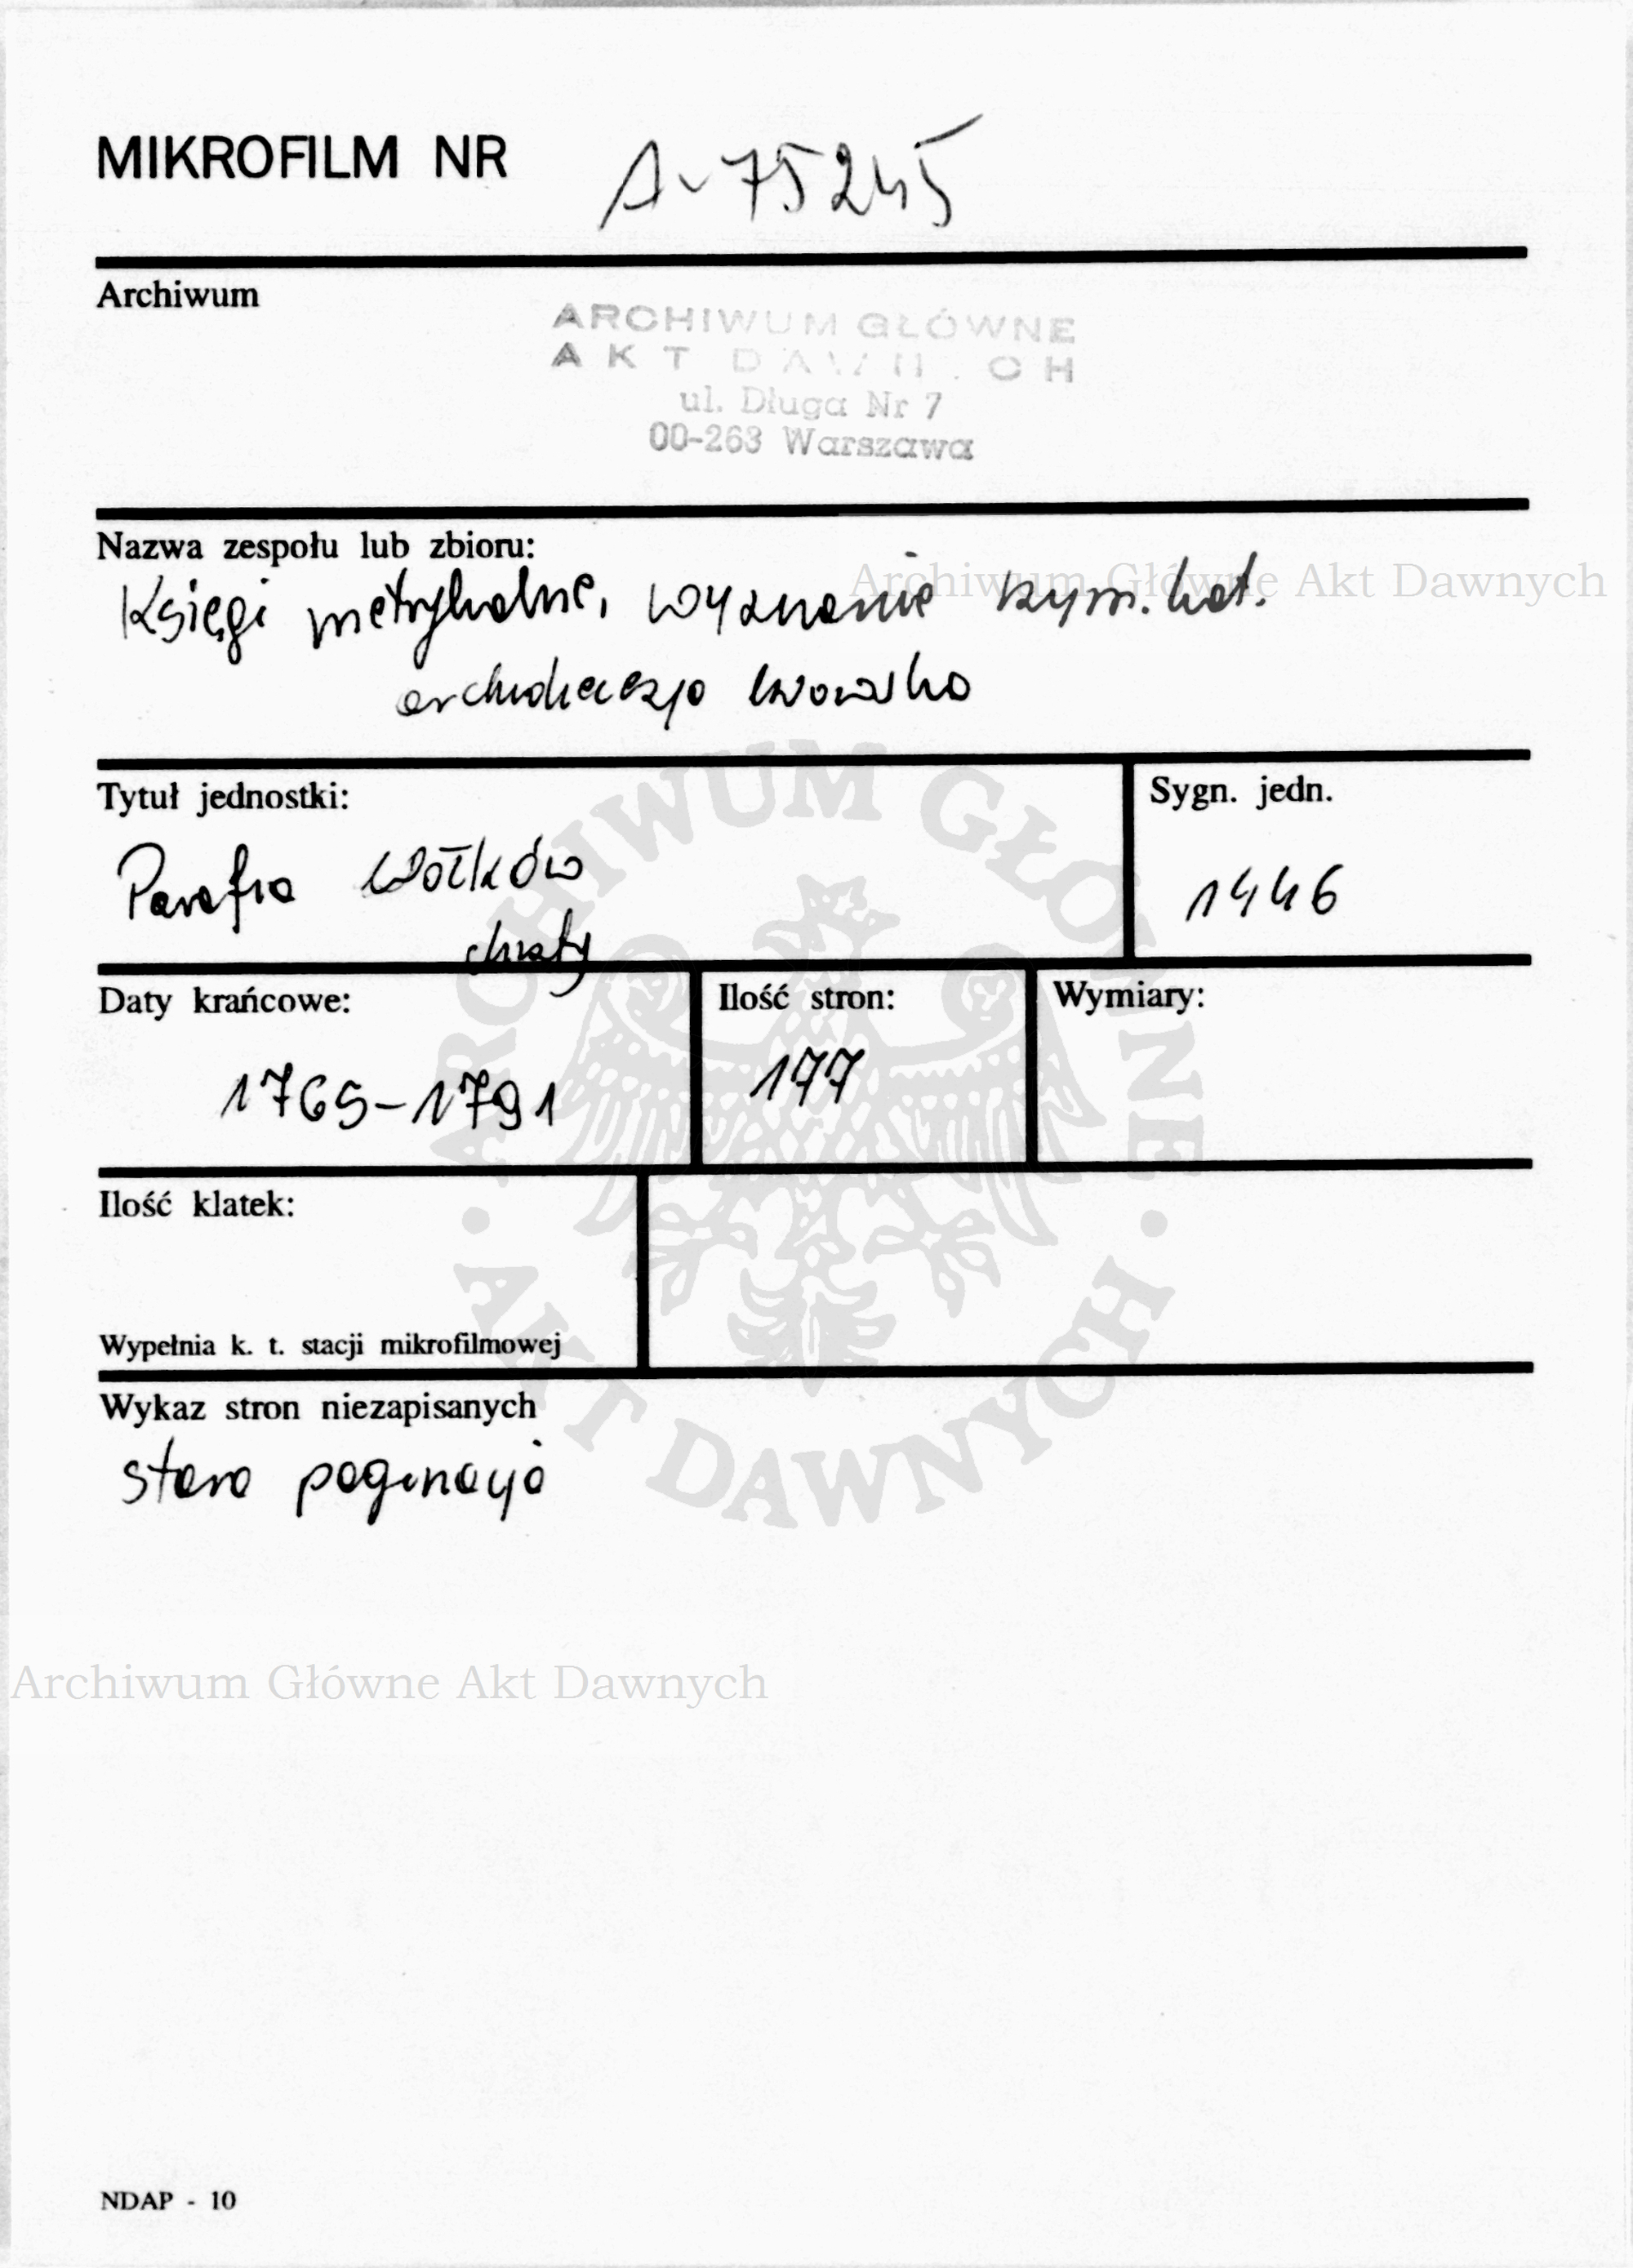 MIKROFILM NR A-75245
Archiwum
ARCHIWUM GŁÓWNE
AKT DAWN.CH
ul. Długa Nr 7
00-263 Warszawa
Nazwa zespołu lub zbioru:
Archiwum Główne Akt Dawnych
Księgi metrykalne, wyznanie rzym. kat.
archidiecezja lwowska
Tytuł jednostki:
Sygn. jedn.
Parafia Wołków
chrzty
1446
Daty krańcowe:
Ilość stron:
Wymiary:
1765-1791
177
Ilość klatek:
Wypełnia k. t. stacji mikrofilmowej
Wykaz stron niezapisanych
stara paginacja
ARCHIWUM GŁÓWNE
· AKT DAWNYCH ·
Archiwum Główne Akt Dawnych
NDAP - 10